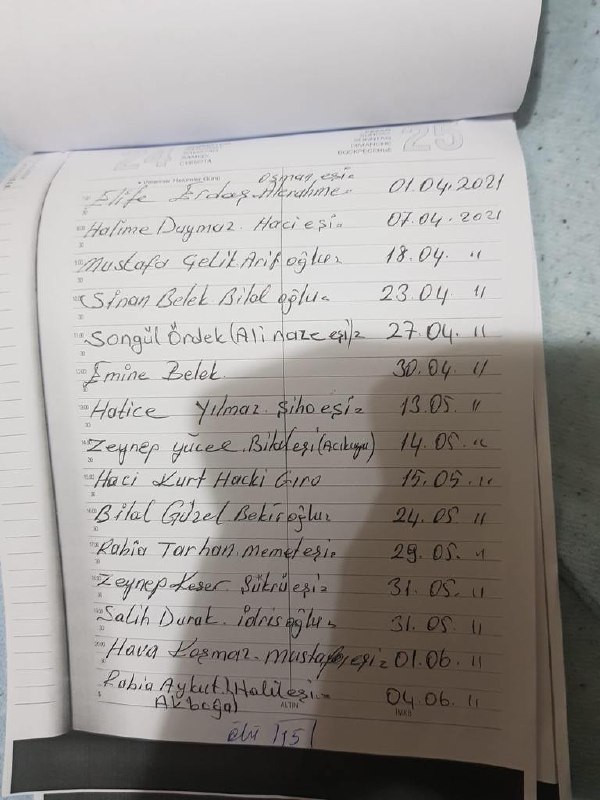 25
SONNTAG
DIMANCHE
Osman eşi
Elife Erdaş 01.04.2021
Halime Daymaz. Haci eşi= 07.04.2021
Mustafa Çelik Arif oğlu= 18.04. "
Sinan Belek Bilal oğlu= 23.04. "
Songül Ördek (Ali naze eşi)= 27.04. "
Emine Belek. 30.04. "
Hatice Yılmaz. Şiho eşi= 13.05. "
Zeynep yücel. Bilal eşi (Acıkuyu) 14.05. "
Haci Kurt Hacki Giro 15.05. "
Bilal Güzel Bekir oğlu= 24.05. "
Rabia Tarhan. memet eşi= 29.05. "
Zeynep Keser. Şükrü eşi= 31.05. "
Salih Durak. idris oğlu= 31.05. "
Hava Koşmaz. Mustafa eşi= 01.06. "
Rabia Aykut. (Halil eşi= 04.06. "
Akboğa)
ALTIN
ölü 15